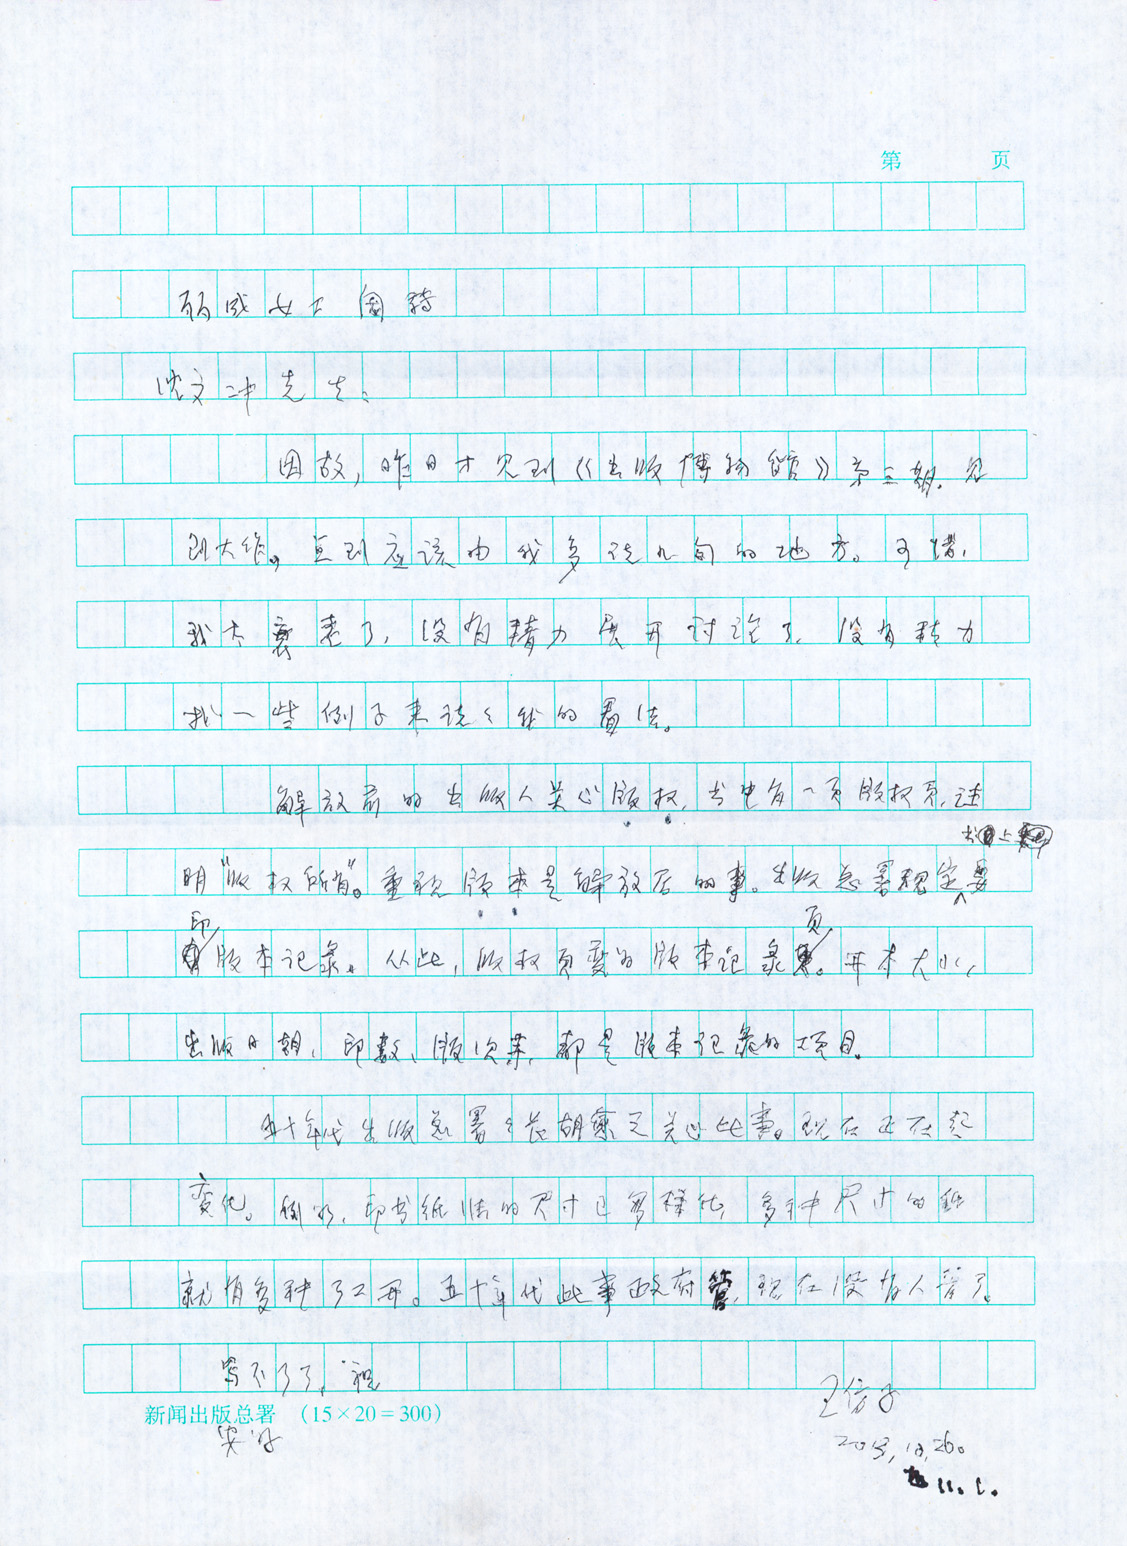 第 页
女士
沈文冲先生：
因故，昨日才见到《出版博物馆》第三期。见
到大作。直到应该由我多说几句的地方。可惜，
我太衰老了，没有精力展开讨论了，没有精力
找一些例子来说说我的看法。
解放前的出版人关心版权，书中有一页版权页，注
书上
明“版权所有”。重视版本是解放后的事。出版总署规定要
印 页
版本记录。从此，版权页变为版本记录。开本大小，
出版日期，印数、版次等，都是版本记录的项目。
五十年代出版总署署长胡愈之关心此事。现在正在起
变化。例如，印书纸张的尺寸已多样化，多种尺寸的纸
就有多种了工开。五十年代此事政府管，现在没有人管了。
写不了了，祝
新闻出版总署 （15×20＝300）
安好
王仿子
2013，10，26。
11。1。